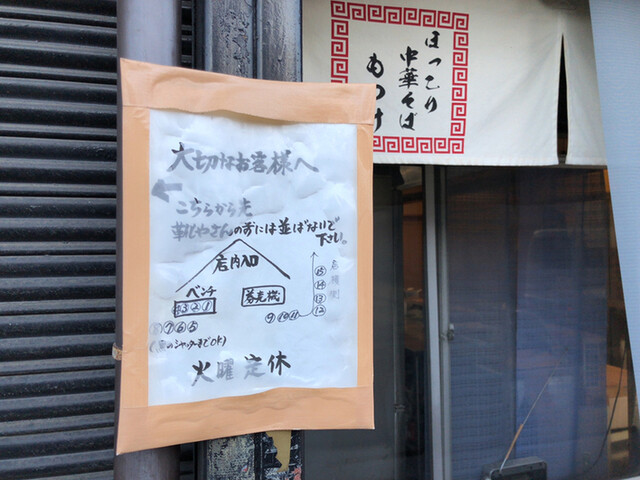 ほっこり
中華そば
もつけ
大切なお客様へ
←
こちらから先
さんの方には並ばないで
下さい。
店内入口
ベンチ
③②①
券売機
⑦⑥⑤
⑨⑩⑪⑫
⑬
⑭
⑮
のシャッターまでOK)
火曜定休